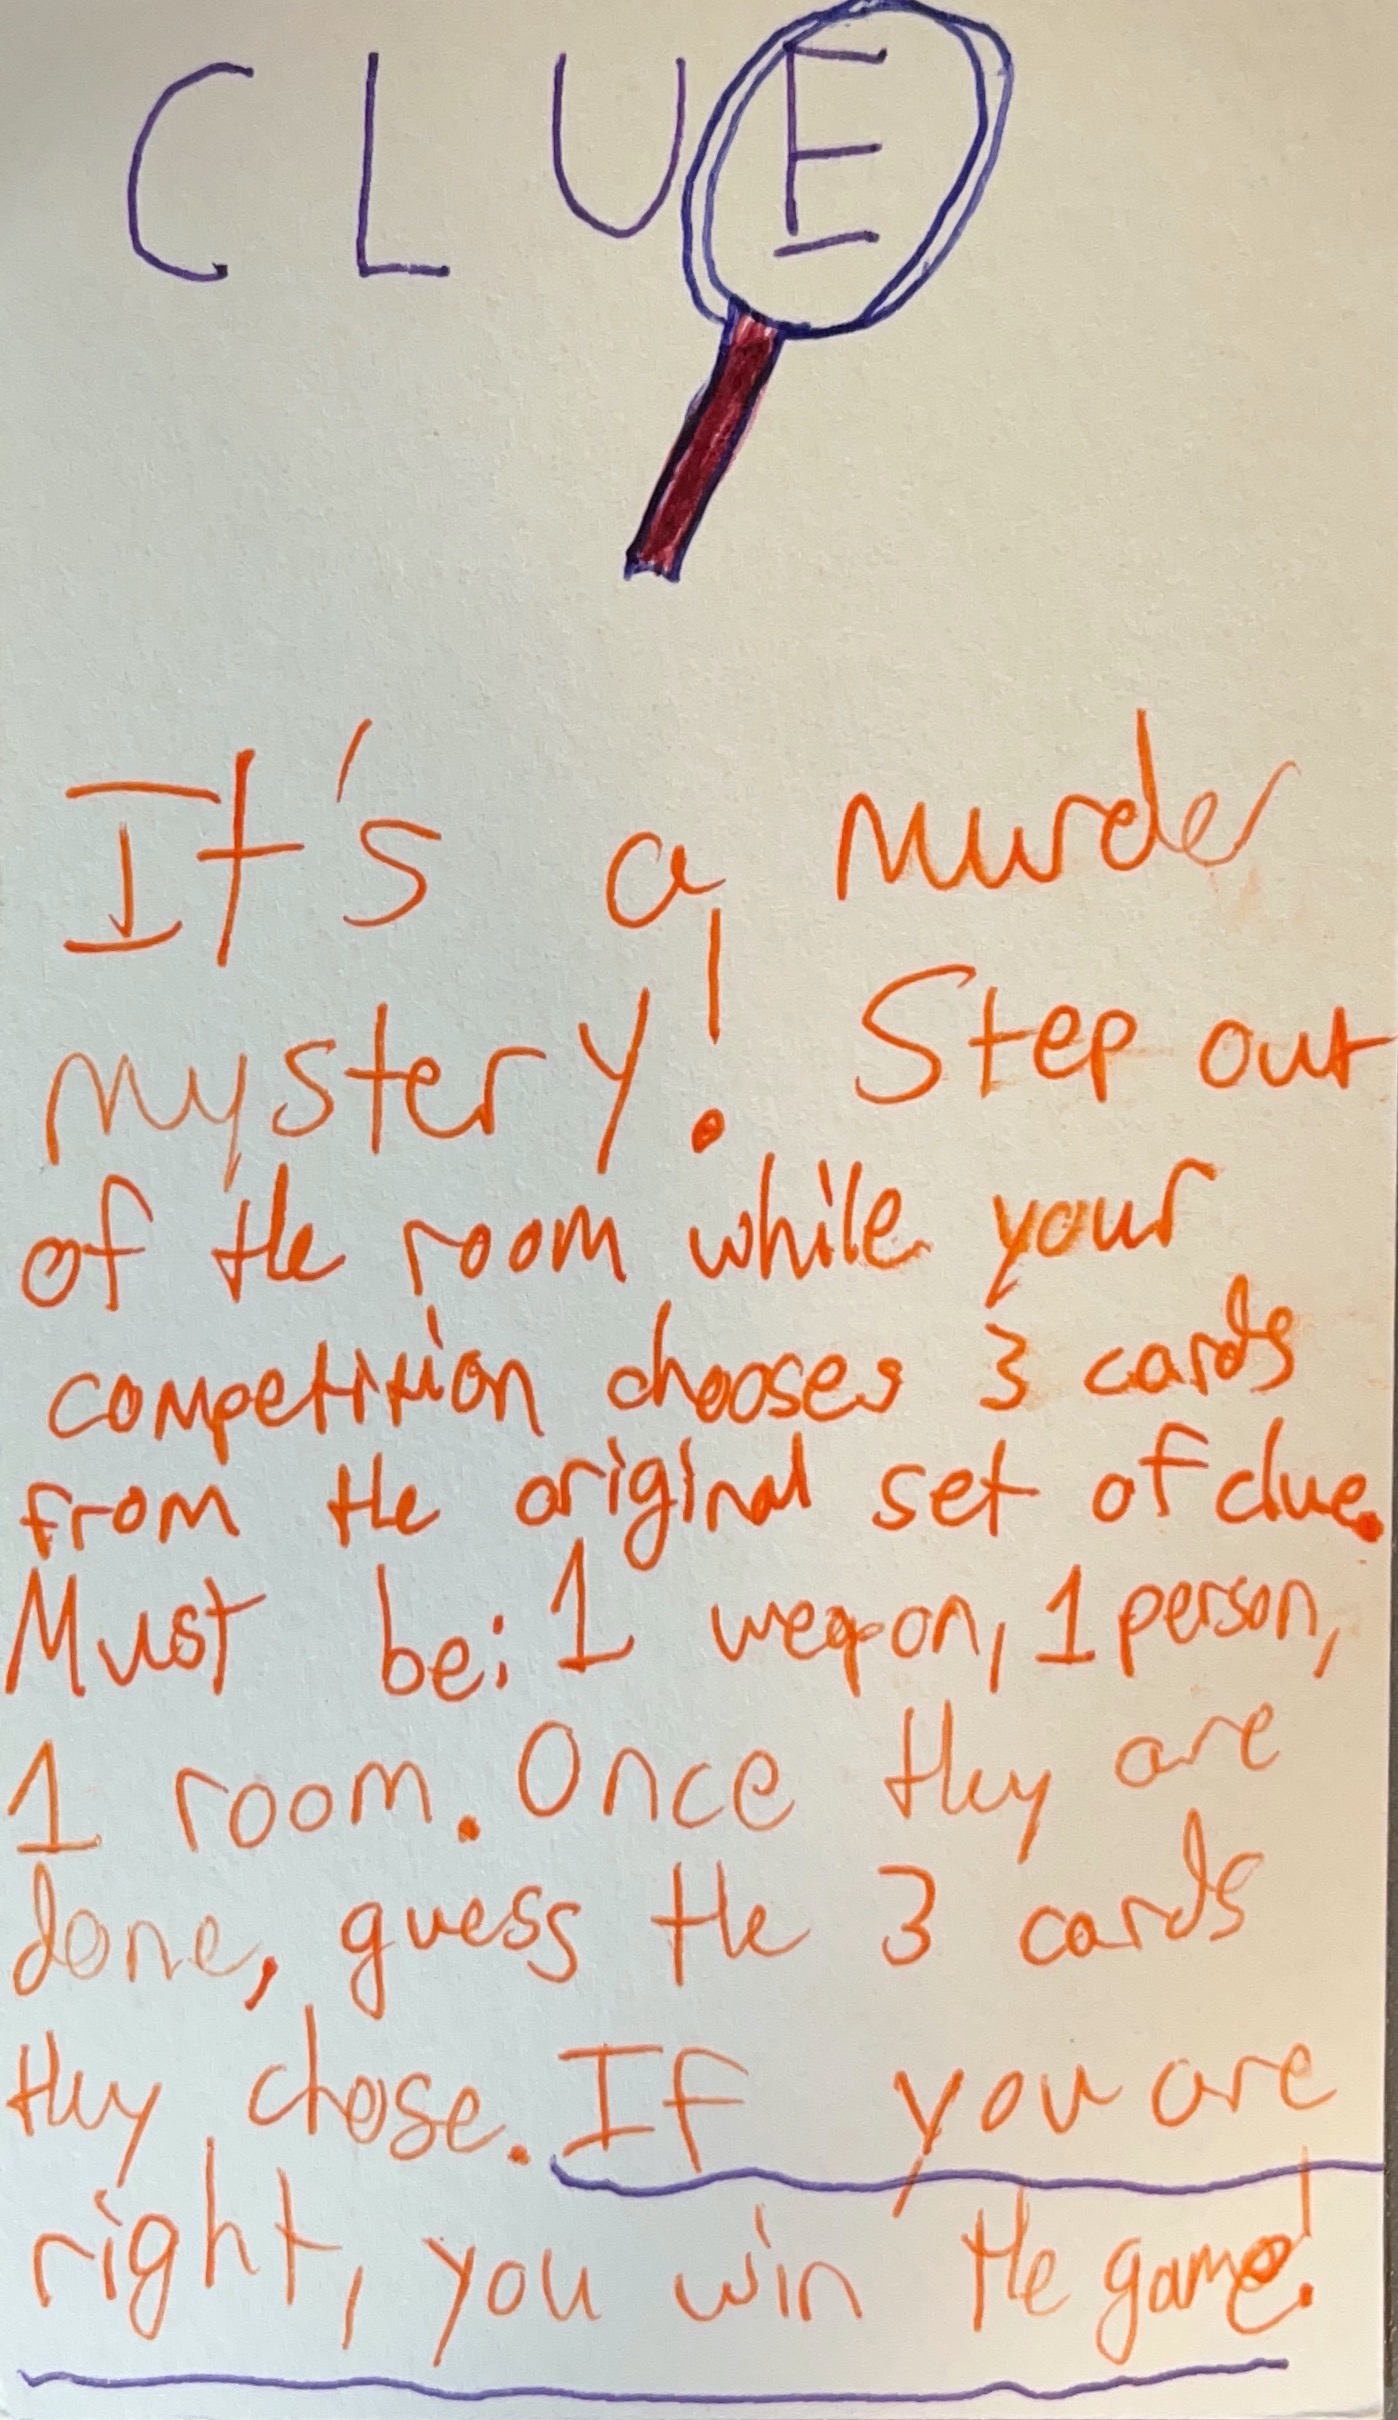 CLUE
It's a murder
mystery! Step out
of the room while your
competition chooses 3 cards
from the original set of clue.
Must be: 1 weapon, 1 person,
1 room. Once they are
done, guess the 3 cards
they chose. If you are
right, you win the game!